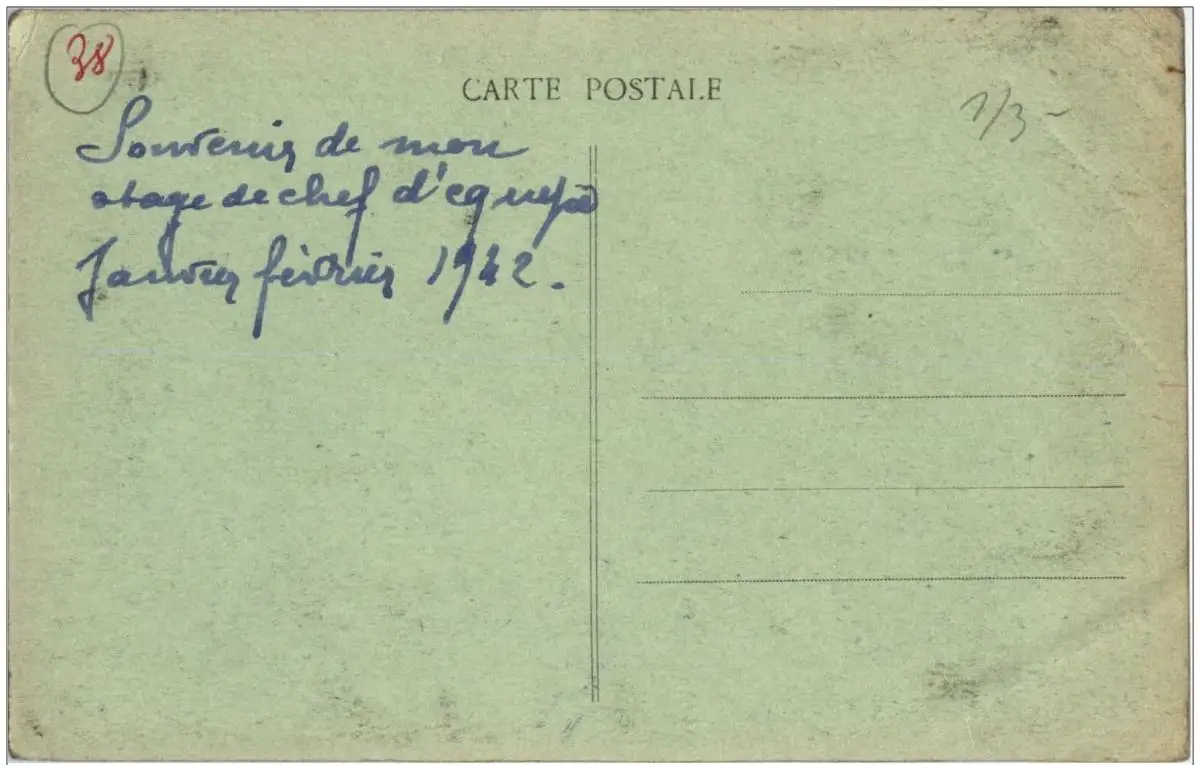 38
CARTE POSTALE
1/3-
Souvenir de mon
stage de chef d'equipe
Janvier février 1942.